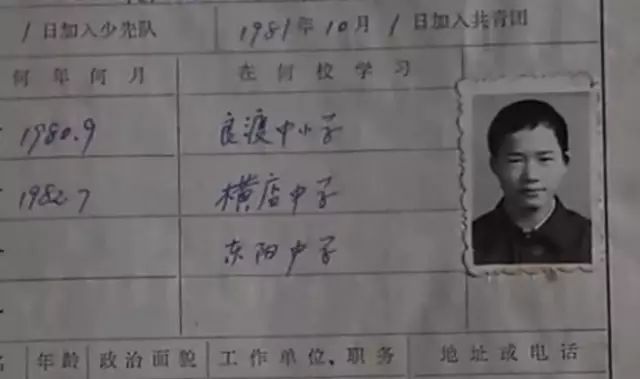 1日加入少先队 1981年10月1日加入共青团
何年何月 在何校学习
1980.9 良渡中小学
1982.7 横店中学
东阳中学
年龄 政治面貌 工作单位、职务 地址或电话